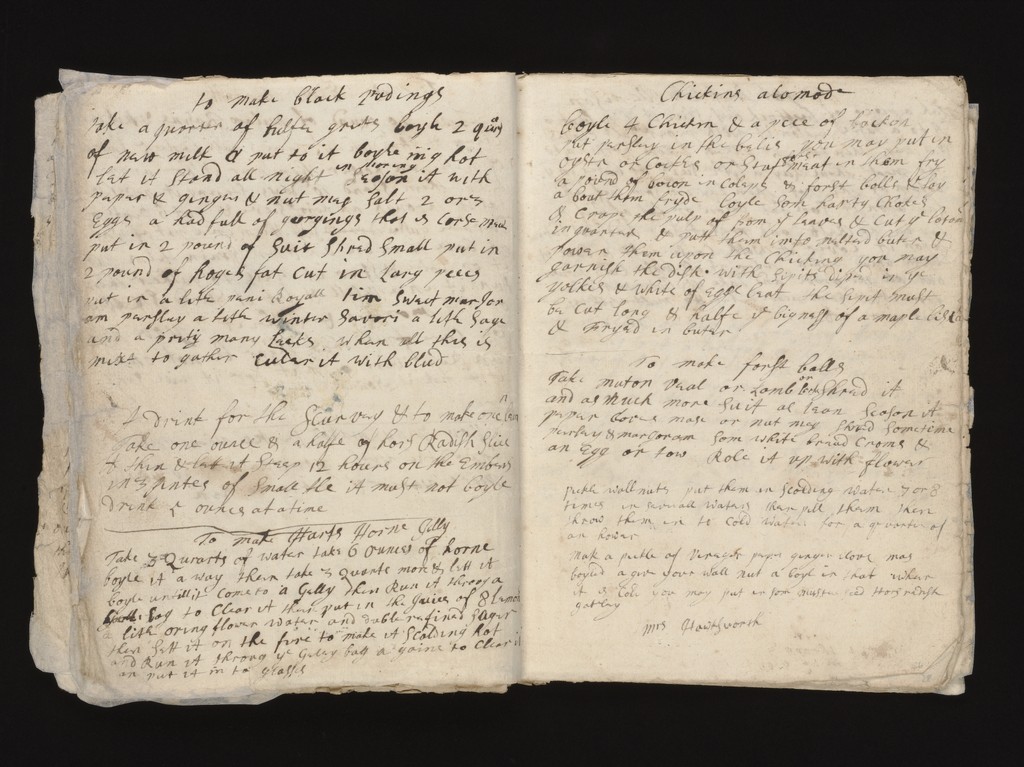 to make black pudings
take a quarter of hulfe grits boyle 2 quarts
of new milk & put to it boyleing hot
Let it stand all night in morning seson it with
peper & ginger & nut meg salt 2 or 3
Eggs a hadfull of that is Corse
put in 2 pound of Suit Shred Small put in
2 pound of hoges fat Cut in larg peces
put in a litle peni Royall tim Sweet marjor
am parsley a litle winter Savori a litle Sage
and a prity many Leeks when all this is
mixt to gather Culer it with blud
A drink for the Scurvey & to make one
Take one ounce & a halfe of hors Radish Slice
it thin & let it Steep 12 hours on the Embers
in 3 pintes of Small Ale it must not boyle
drink 5 ounces at a time
To make Harts Horne Gelly
Take 3 Quarts of water take 6 ounces of horne
boyle it a way then take 3 Quarts more & lett it
boyle untill it come to a Gelly then Run it throug a
bag to Clear it then put in the Juice of 8 Lemons
a litle oring flower water and duble refined Suger
then Sett it on the fire to make it Scolding hot
and Run it throug ye Gelley bag a gaine to Clear it
an put it in to glasses
Chickins alomode
boyle 4 Chicken & a pece of backon
put parsley in the belis you may put in
oysters or Cockles or meat in them fry
a pound of bacon in Colaps & forst balls & lay
a bout them fryde boyle som harty Chokes
& Crap the pulp of som ye leaves & Cut ye botom
in quarters & putt them into melted buter &
power them upon the Chicking you may
garnish the dish with Sipits diped in ye
yolkes & white of Eggs beat the Sipit must
be Cut long & halfe ye bigness of a
& fryed in buter
To make forst balls
Take muton veal or Lamb shred it
and as much more Suit as lean Season it
peper mase or nut meg shred Some time
parsley & marjoram Som white bread Croms &
an Egg or tow Role it up with flower
pickle wallnuts put them in Scolding water 7 or 8
times in severall waters then pill them then
throw them in to Cold water for a quarter of
an hower
Make a pickle of peper ginger clove mas
boyled a give your wall nut a boyle in that when
it is Cold you may put in som musterseed Horsradish
garlek
Mrs Hawthworth